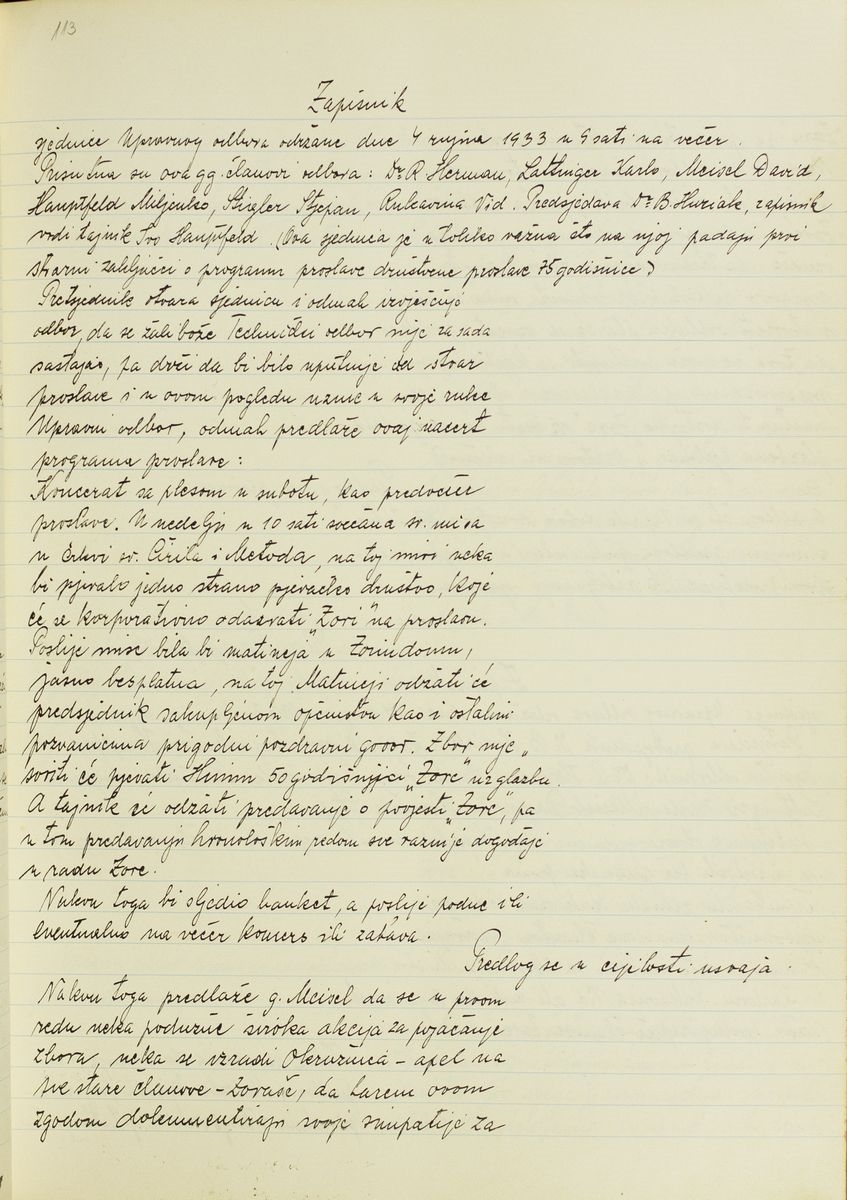 113
Zapisnik
sjednice Upravnog odbora održane dne 4 rujna 1933 u 9 sati na večer.
Prisutna su ova gg. članovi odbora: Dr R Herman, Lattinger Karlo, Meisel David,
Hauptfeld Miljenko, Stiegler Stjepan, Rukavina Vid. Predsjedava Dr B Huziak, zapisnik
vodi tajnik Ivo Hauptfeld. (Ova sjednica je u toliko važna što na njoj padaju prvi
stvarni zaključci o programu proslave društvene proslave 75 godišnice)
Pretsjednik otvara sjednicu i odmah izvješćuje
odbor, da se žalibože Technički odbor nije za sada
sastajao, pa drži da bi bilo uputnije od stvar
proslave i u ovom pogledu uzme u svoje ruke
Upravni odbor, odmah predlaže ovaj nacrt
programa proslave:
Koncerat sa plesom u subotu, kao predvečer
proslave. U nedelju u 10 sati svečana sv. misa
u crkvi sv. Ćirila i Metoda, na toj misi neka
bi pjevalo jedno strano pjevačko društvo, koje
će se korporativno odazvati "Zori" na proslavu.
Poslije mise bila bi "matineja" u Zorindomu,
jasno besplatna, na toj Matineji održati će
predsjednik sakupljenom općinstvu kao i ostalim
pozvanicima prigodni pozdravni govor. Zbor nije „
svoriti će pjevati Himnu 50 godišnjici „Zore" uz glazbu.
A tajnik će održati predavanje o povjesti „Zore", pa
u tom predavanju hronološkim redom sve raznije dogođaje
u radu Zore.
Nakon toga bi sljedio banket, a poslije podne ili
eventualno na večer komers ili zabava.
Predlog se u cijelosti usvaja.
Nakon toga predlaže g. Meisel da se u prvom
redu neka poduzme široka akcija za pojačanje
zbora, neka se izradi Okružnica - apel na
sve stare članove - Zoraše, da barem ovom
zgodom dokumentiraju svoje simpatije za